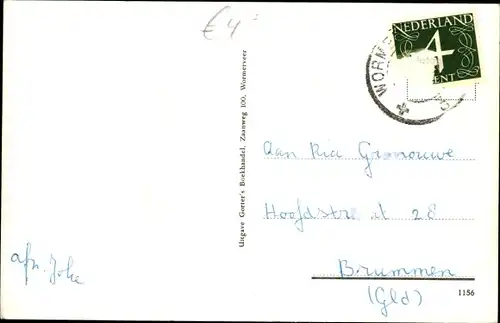 € 4
NEDERLAND
4
CENT
WORM
Uitgave Gorter's Boekhandel, Zaanweg 100, Wormerveer
Aan Ria Gronouwe
Hoofdstraat 28
Brummen
(Gld)
afz. Joke
1156